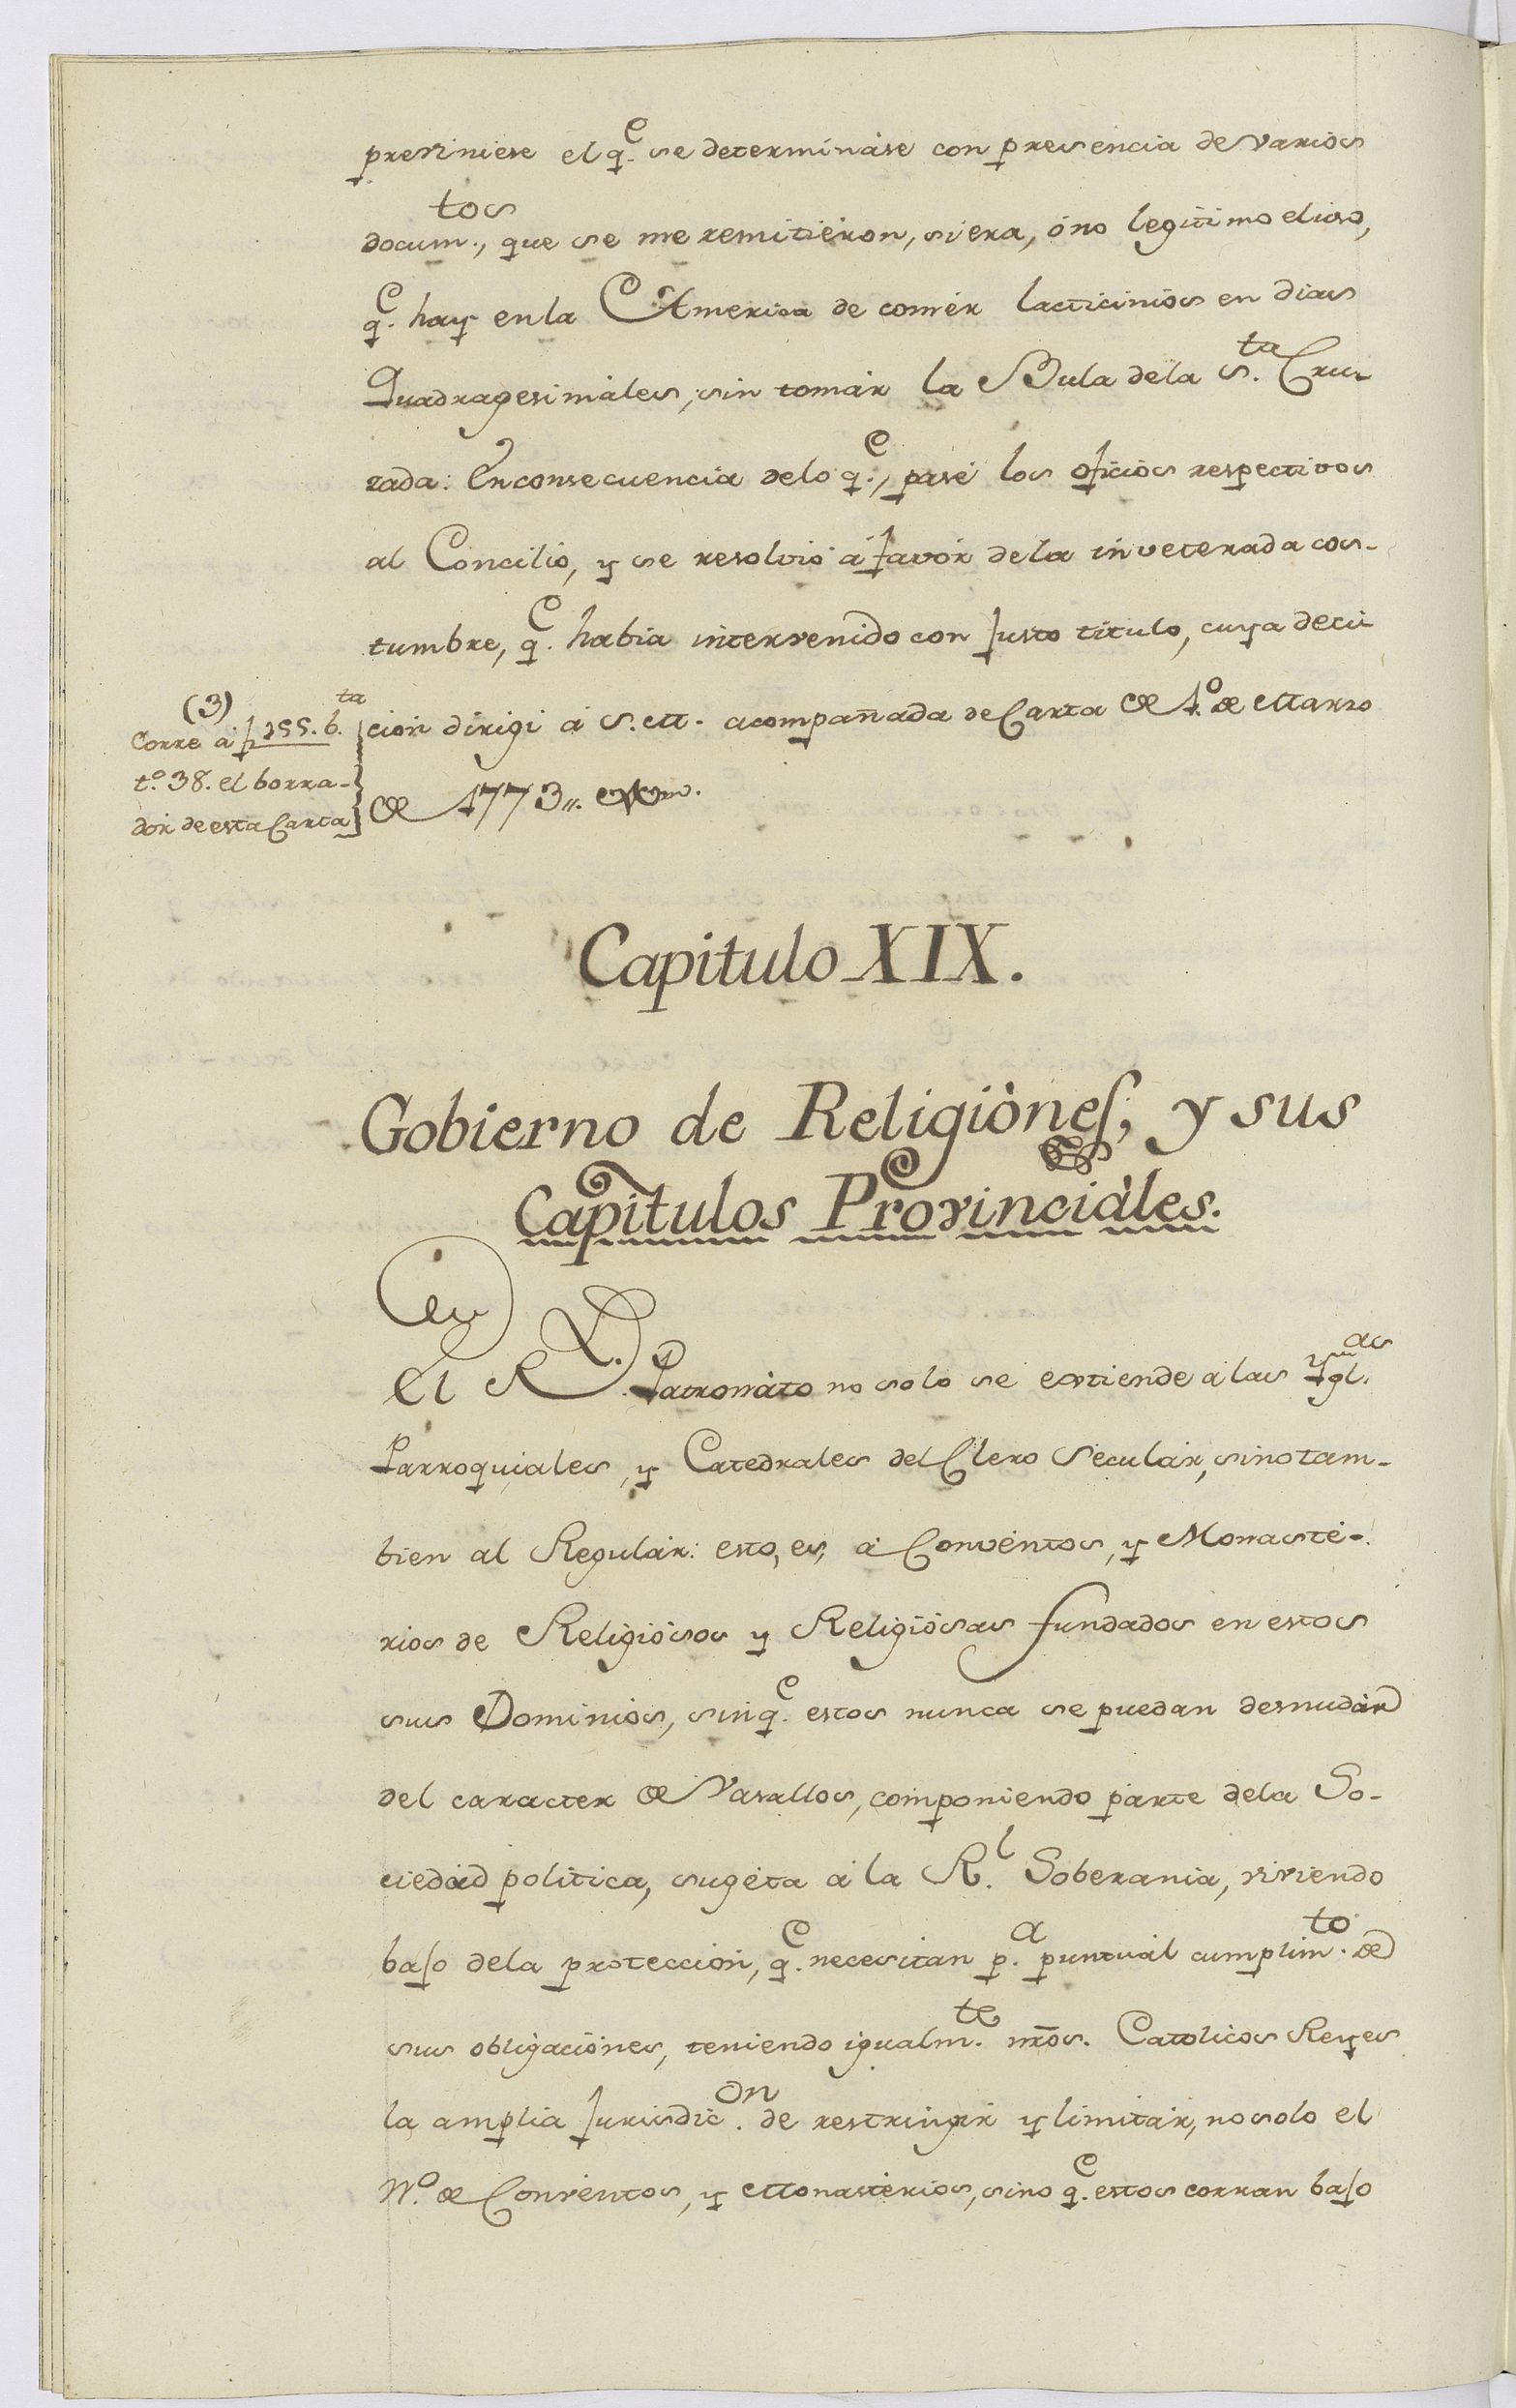 previniese el q.e se determináse con presencia de varios
docum.tos, que se me remitiéron, si era, ó no legitimo el uso,
q.e hay en la America de comér lacticinios en dias
Quadragesimáles, sin tomár la Bula de la S.ta Cru-
zada: En consecuencia de lo q.e, pasé los oficios respectivos
al Concilio, y se resolvió á favór de la inveterada cos-
tumbre, q.e habia intervenido con justo titulo, cuya deci
ción dirigi á S. M. acompañada de Carta de 1.o de Marzo
de 1773,,
(3)
Corre á f 255. b.ta
t.o 38. el borra-
dór de esta Carta
Capitulo XIX.
Gobierno de Religiònes, y sus
Capitulos Provinciàles.
El R.l Patronáto no solo se extiende á las Ygl.as
Parroquiales, y Catedrales del Clero Seculár, sino tam-
bien al Regulár: esto, es, á Conventos, y Monasté-
rios de Religiósos y Religiósas fundados en estos
sus Dominios, sin q.e estos nunca se puedan desnudár
del caracter de Vasallos, componiendo parte de la So-
ciedád politica, sugéta á la R.l Soberania, viviendo
bajo de la protección, q.e necesitan p.a puntuál cumplim.to de
sus obligaciónes, teniendo igualm.te nrōs. Catolicos Reyes
la amplia jurisdic.on de restringir y limitár, no solo el
N.o de Conventos, y Monasterios, sino q.e estos corran bajo